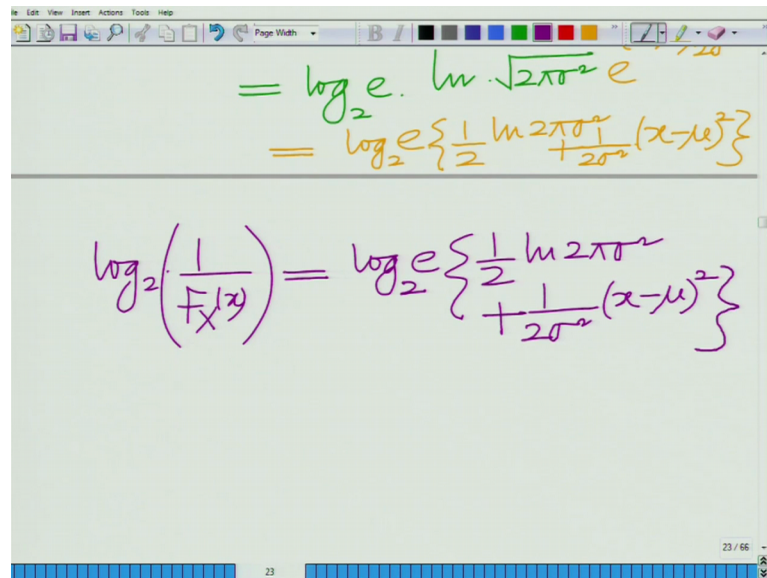 Edit View Insert Actions Tools Help
Page Width B I
= log₂e. ln.√2πσ² e
= log₂e{1/2 ln 2πσ² + 1/2σ² (x-μ)²}
log₂(1/F_X(x)) = log₂e{1/2 ln 2πσ²
+ 1/2σ² (x-μ)²}
23 / 66
23